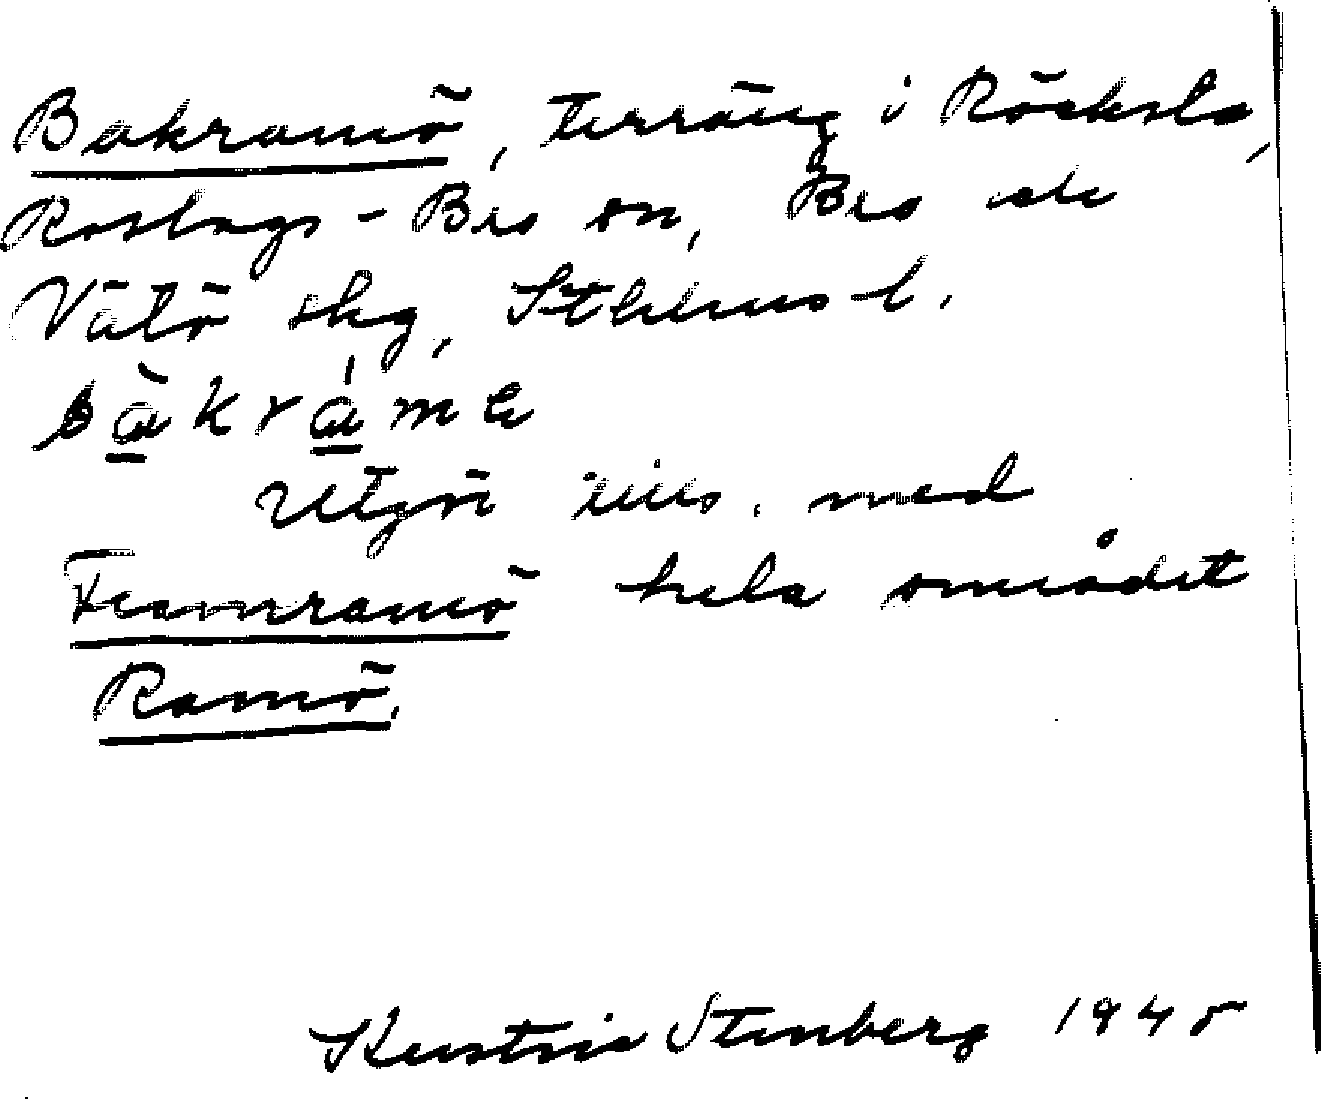 Bakramö, terräng i Röcksta,
Roslags-Bro sn, Bro och
Vätö skg, Sthlms l.
bàkráme
Utgör tills. med
Framramö hela området
Ramö.
Kerstin Stenberg 1945